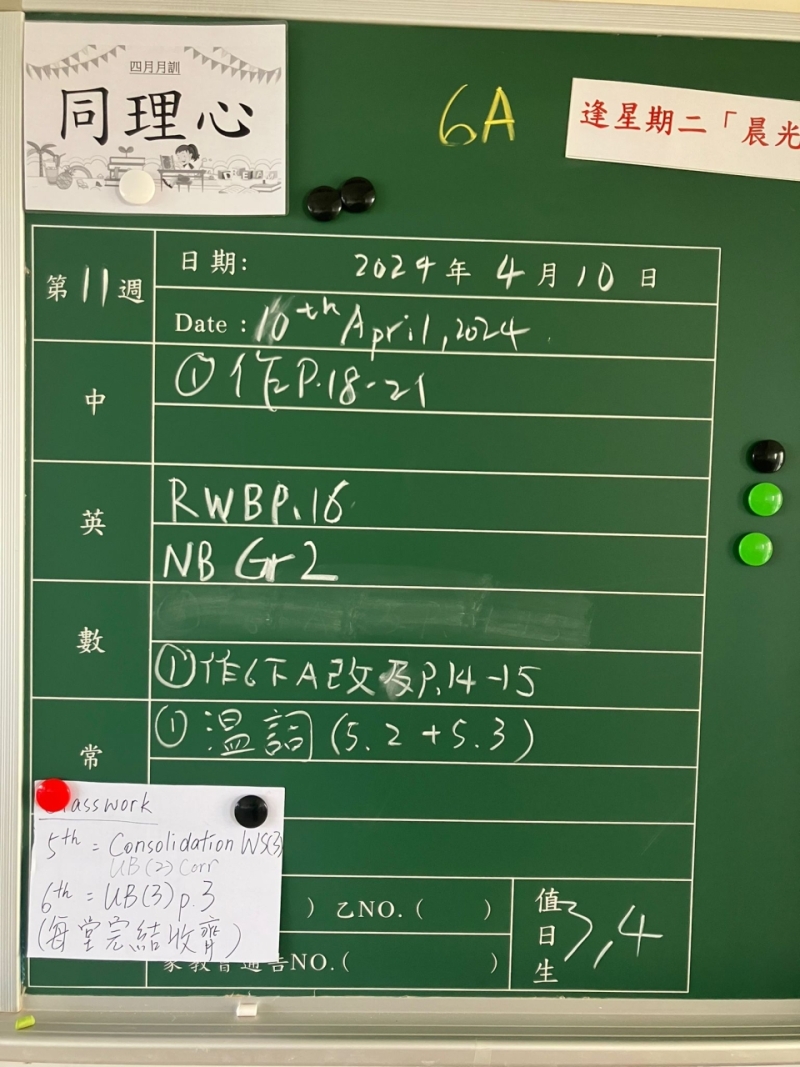 四月月訓
同理心
6A
逢星期二「晨光
第11週
日期: 2024年 4月10日
Date : 10th April, 2024
中
①作P.18-21
英
RWBP.16
NB Gr2
數
①作6下A改及P.14-15
常
①溫詞(5.2+5.3)
Classwork
5th = Consolidation WS(3)
UB(2) Corr
6th = UB(3) p.3
(每堂完結收齊)
) 乙NO.( )
家教會通告NO.( )
值日生 3,4